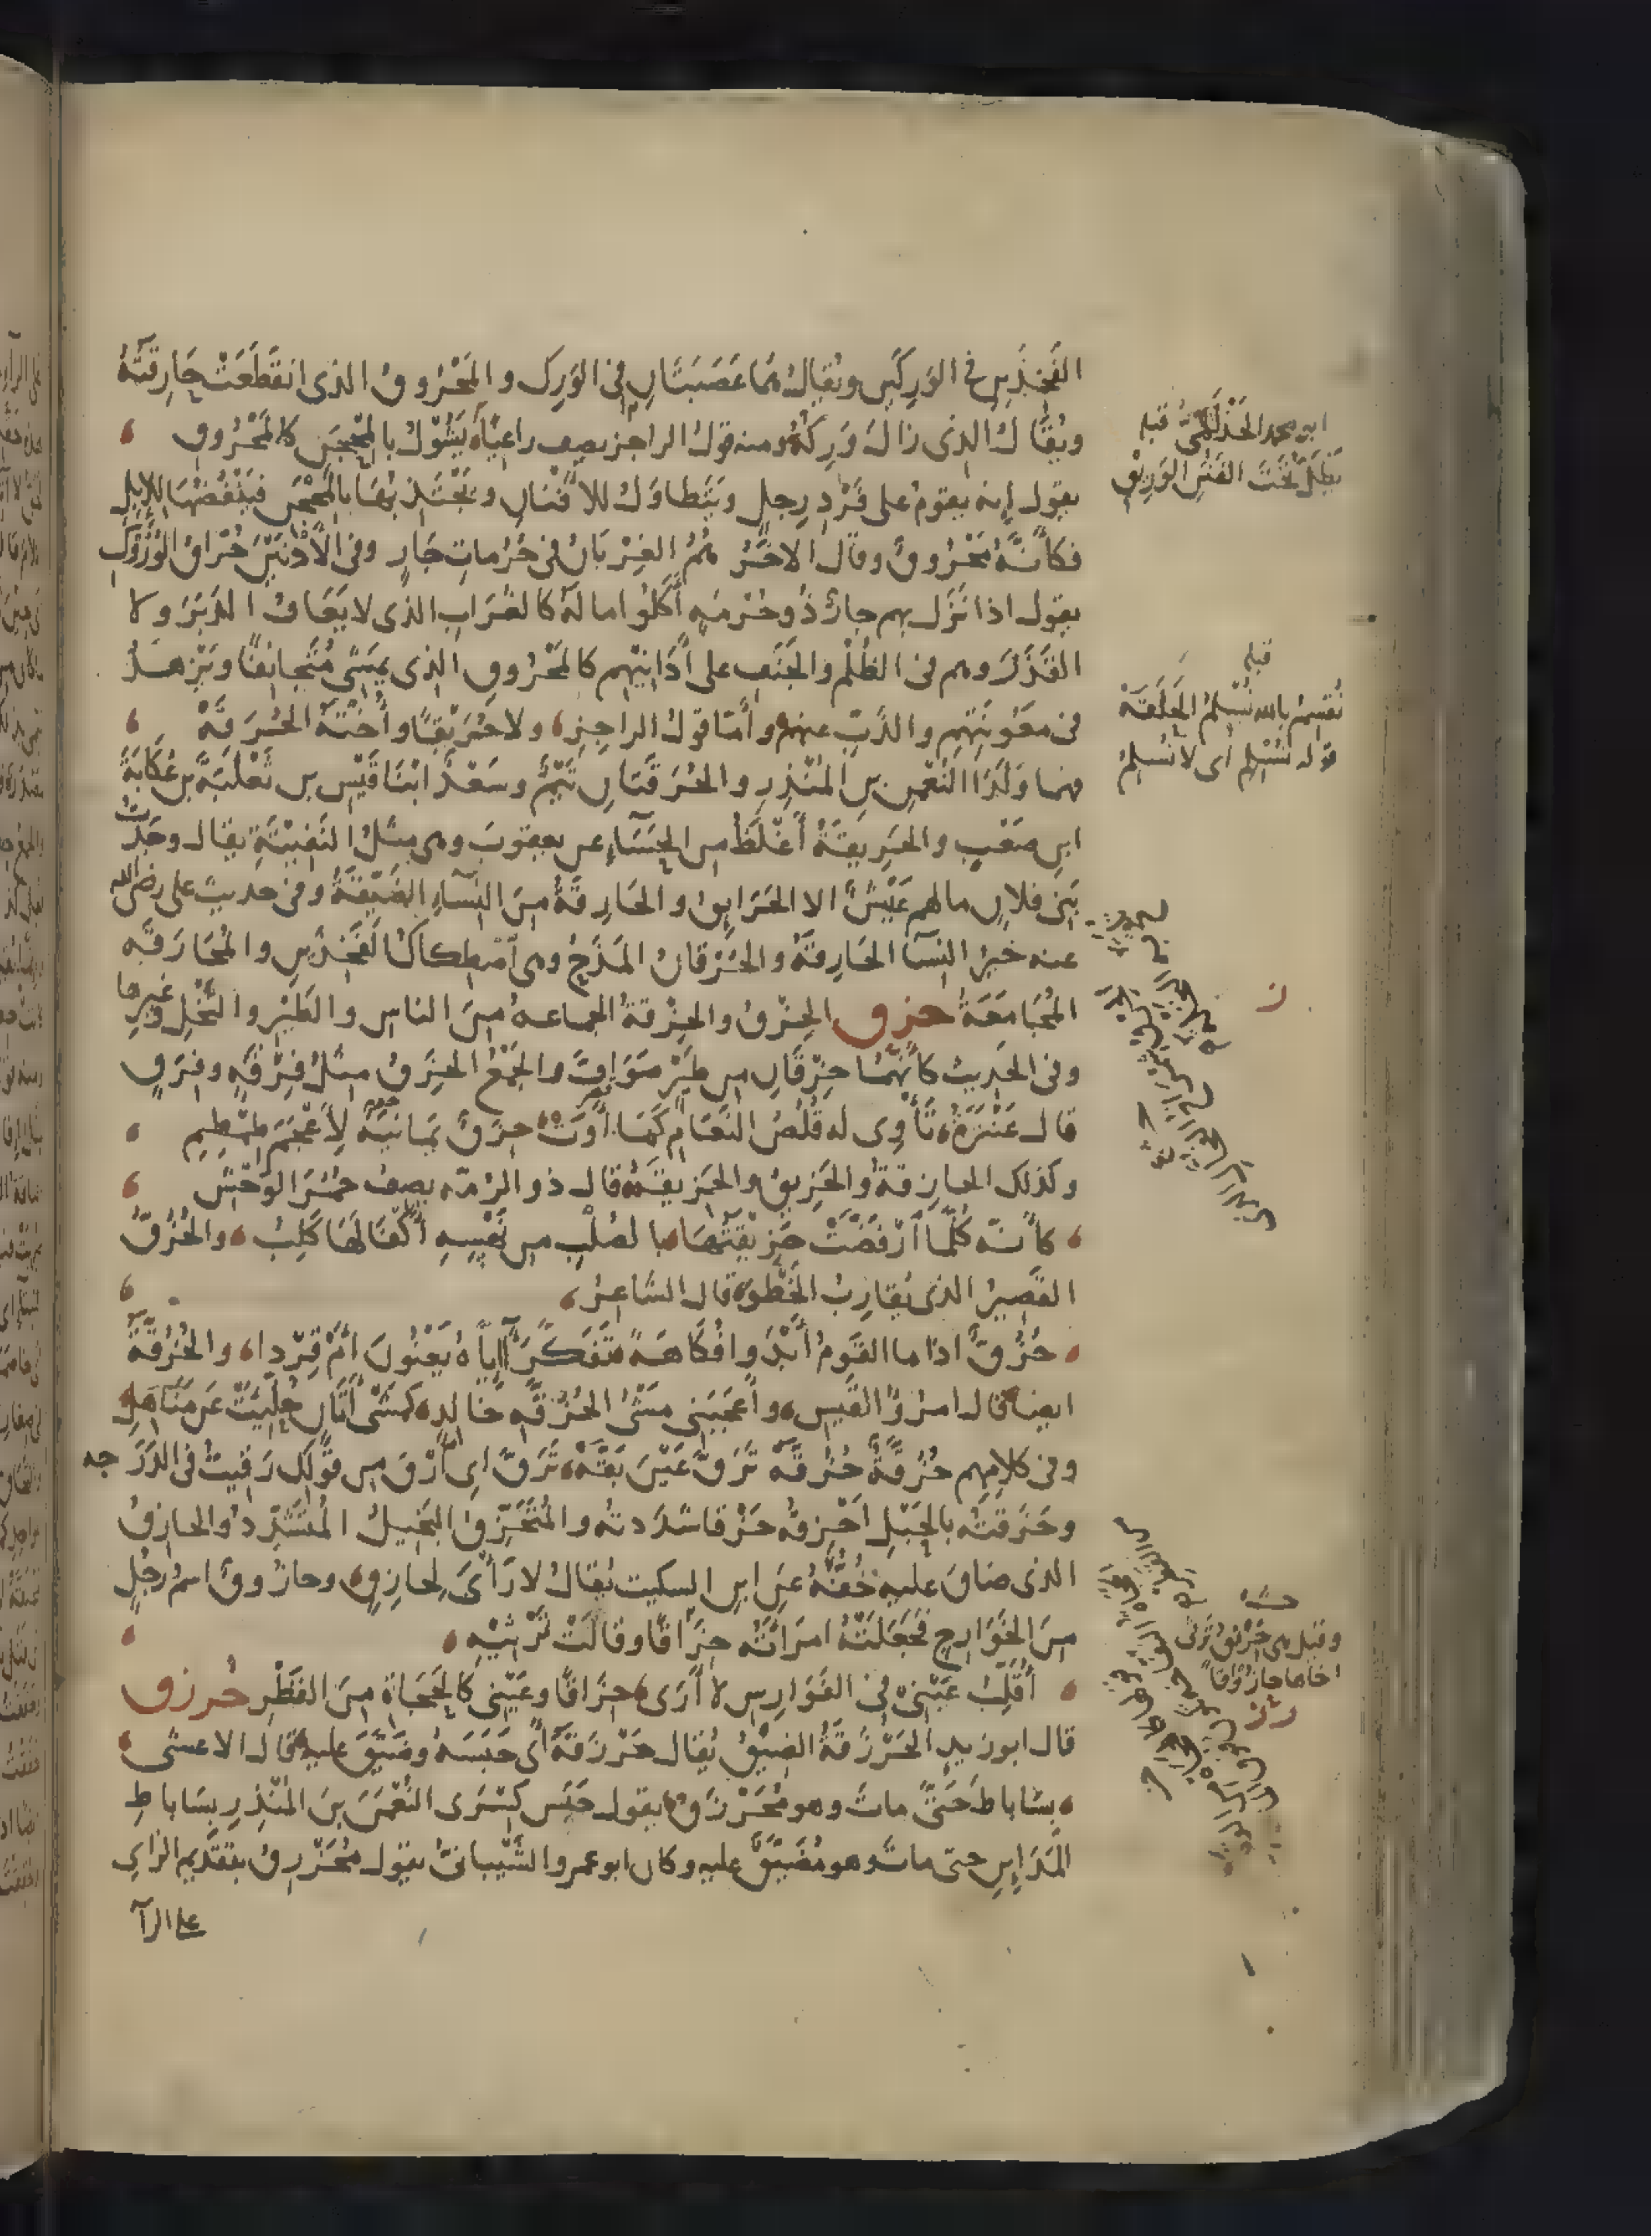 الفَخِذَيْنِ في الوَرِكَيْنِ ويُقالُ هما عَصَبَتَانِ في الوَرِكِ والمَحْرُوقُ الذى انقَطَعَتْ حَارِقَتُهُ
ويُقَالُ الذى زالَ وَرِكُهُ ومنه قول الراجز يصف راعيًا يَشُولُ بالمِحْجَنِ كالمَحْرُوقِ
يقول إنه يقوم على فَرْدِ رِجلٍ ويَتَطاوَلُ للأَفْنَانِ ويَجْتَذِبُهَا بالمِحْجَنِ فيَنْفُضُهَا للإبل
فكأنَّهُ مَحْرُوقٌ وقال الاخَرُ هُمُ الغِرْبَانُ في حُرُماتِ جَارٍ وفي الأَدْنَيْنَ حُرَّاقُ الوُرُوكِ
يقول اذا نَزَلَ بهم جارٌ ذُو حُرْمَةٍ أَكَلُوا مالَهُ كالغُرَابِ الذى لا يَعَافُ الدَبَرَ ولا
القَذَرَ وهم في الظُلْمِ والجَنَفِ على أَدَانِيْهِم كالمَحْرُوقِ الذى يَمْشِى مُتَجانِفًا ويَزْهَدُ
في مَعُونَتِهِم والذَّبِّ عنهم وأَمَّا قول الراجِزِ ولا حُرَيْقًا وأُخْتَهُ الحُرَقَهْ
فهما وَلَدَا النُعْمٰنِ بنِ المُنْذِرِ والحُرَقَتَانِ تَيْمٌ وسَعْدٌ ابْنَا قَيْسِ بن ثَعْلَبَةَ بن عُكَابَةَ
ابن صَعْبٍ والحَرِيقَةُ أَغْلَظُ من الحَسَاءِ عن يعقوبَ وهى مِثْلُ النَفِيْتَةِ يقال وجَدْتُ
بَنِى فلانٍ مالهم عَيْشٌ الا الحَرَايِقُ والحَارِقَةُ مِنَ النِسَاءِ الضَيِّقَةُ وفي حديث على رضى الله
عنه خَيْرُ النِسَآ الحَارِقَةُ والحُرْقَانُ المَذَحُ وهى اصْطِكاكُ الفَخِذَيْنِ والمُحَارَقَةُ
المُجَامَعَةُ حزق الحِزْقُ والحِزْقَةُ الجماعة مِنَ الناس والطَيْرِ والنَّخْلِ وغيرِها
وفي الحديث كأَنَّهُمَا حِزْقَانِ من طَيْرٍ صَوَافَّ والجَمْعُ الحِزَقُ مِثْلُ فِرْقَةٍ وفِرَقٍ
قال عَنْتَرَةُ تَأْوِى له قُلُصُ النَعَامِ كَمَا أَوَتْ حِزَقٌ يَمَانِيَةٌ لِأَعْجَمَ طِمْطِمِ
وكذلك الحازِقَةُ والحَزِيقُ والحَزِيقَةُ قال ذو الرُمّة يصِفُ حُمُرَ الوَحْشِ
كأَنَّه كُلَّمَا ارْفَضَّتْ حَزِيْقَتُهَا بالصُلْبِ من نَهْسِهِ أَكْفَالَهَا كَلِبُ والحُزُقُّ
القَصِيرُ الذى يُقارِبُ الخَطْوَ قال الشاعِرُ
حُزُقٌّ اذا ما القَومُ أَبْدَوا فُكَاهَةً تَفَكَّرَ آإيّاهُ يَعْنُونَ أَمْ قِرْدا والحُزُقَّةُ
ايضا قال امرُؤُ القَيس وأَعْجَبَنِى مَشْىُ الحُزُقَّةِ خَالِدٍ كمَشْىِ أَتَانٍ حُلِّيَتْ عَن مَنَاهِلِ
وفي كلامِهِم حُزُقَّةٌ حُزُقَّهْ تَرَقَّ عَيْنَ بَقَّهْ تَرَقَّ اى ارْقَ من قَوْلِكَ رَقِيتُ في الدَرَجه
وحَزَقْتُه بالحَبْلِ أَحْزِقُه حَزْقا شَدَدتُه والمُتَحَزِّقُ البَخِيلُ المُتَشَدِّدُ والحازِقُ
الذى ضاقَ عليه خُفُّهُ عَنِ ابن السكيت يُقالُ لا رَأْىَ لِحازِقٍ وحازُوقٌ اسمُ رَجُلٍ
مِنَ الخَوَارِجِ فَجَعَلَتْهُ امرَاتُه حِزَاقًا وقالَتْ تَرْثِيْهِ
أُقَلِّبُ عَيْنِى في الفَوَارِسِ لا أَرَى حِزَاقًا وعَيْنِى كالحَجَاةِ مِنَ القَطْرِ حرزق
قال ابو زيدٍ الحَرْزَقَةُ الضِيْقُ يُقال حَرْزَقَهُ أى حَبَسَهُ وضَيَّقَ عليه قال الاعشى
بسَاباطَ حَتَّى ماتَ وهو مُحَرْزَقُ يقول حَبَسَ كِسْرَى النُعْمٰنَ بنَ المُنْذِرِ بسَاباطِ
المَدَايِنِ حتى مات وهو مُضَيَّقٌ عليه وكان ابو عمرو الشَيْبانىُّ يقول مُحَزْرَقٌ بتقديم الزاى
على الرآ
ابو محمد الحَذْلَمِىُّ قبله
يَظَلُّ تَحْتَ الفَنَنِ الوَرِيْقِ
قبله
نُقْسِمُ بالله نُسْلِمُ الحَلَقَهْ
قوله نُسْلِم أى لا نُسْلِمُ
ز
وقيل هى خِرْنِقُ تَرْثى
اخاها حازُوْقا
رز